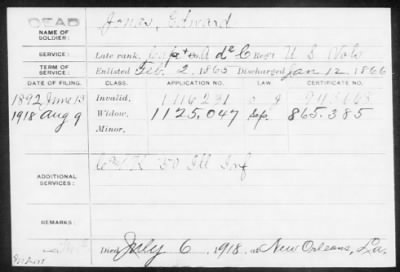 DEAD
NAME OF SOLDIER: Jones, Edward
SERVICE: Late rank, Capt + A de C Regt U S Vols
TERM OF SERVICE: Enlisted Feb. 2, 1865 Discharged Jan 12, 1866
DATE OF FILING. CLASS. APPLICATION NO. LAW. CERTIFICATE NO.
1892 June 13 Invalid, 1116231
1918 Aug 9 Widow, 1125.047 865.385
Minor,
ADDITIONAL SERVICES: 50 Ill Inf
REMARKS:
Died July 6, 1918, at New Orleans, La.